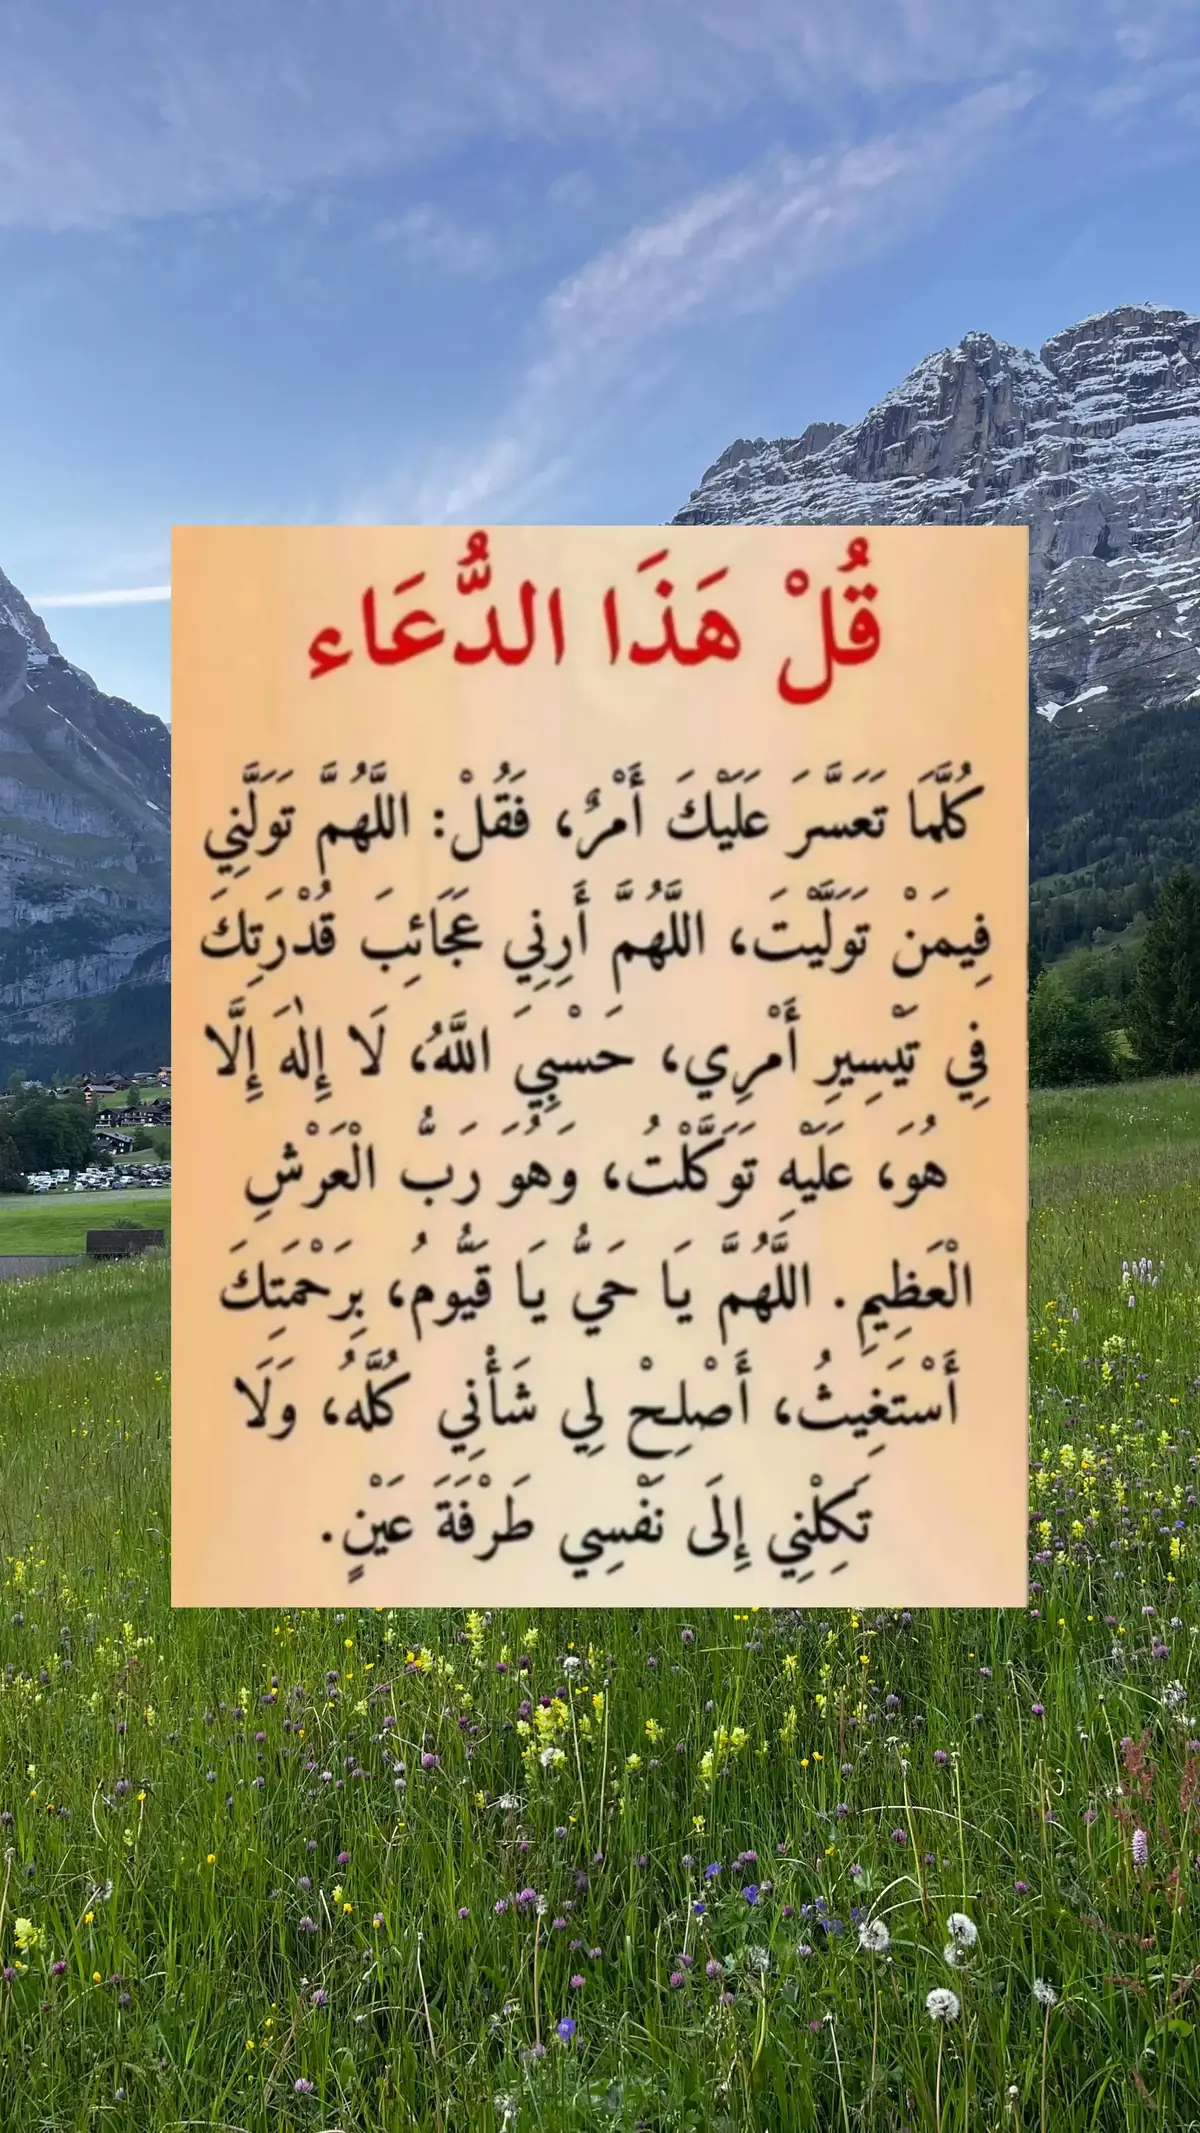 قُلْ هَذَا الدُّعَاء
كُلَّمَا تَعَسَّرَ عَلَيْكَ أَمْرٌ، فَقُلْ: اللَّهُمَّ تَوَلَّنِي
فِيمَنْ تَوَلَّيْتَ، اللَّهُمَّ أَرِنِي عَجَائِبَ قُدْرَتِكَ
فِي تَيْسِيرِ أَمْرِي، حَسْبِيَ اللَّهُ، لَا إِلٰهَ إِلَّا
هُوَ، عَلَيْهِ تَوَكَّلْتُ، وَهُوَ رَبُّ الْعَرْشِ
الْعَظِيمِ. اللَّهُمَّ يَا حَيُّ يَا قَيُّومُ، بِرَحْمَتِكَ
أَسْتَغِيثُ، أَصْلِحْ لِي شَأْنِي كُلَّهُ، وَلَا
تَكِلْنِي إِلَى نَفْسِي طَرْفَةَ عَيْنٍ.